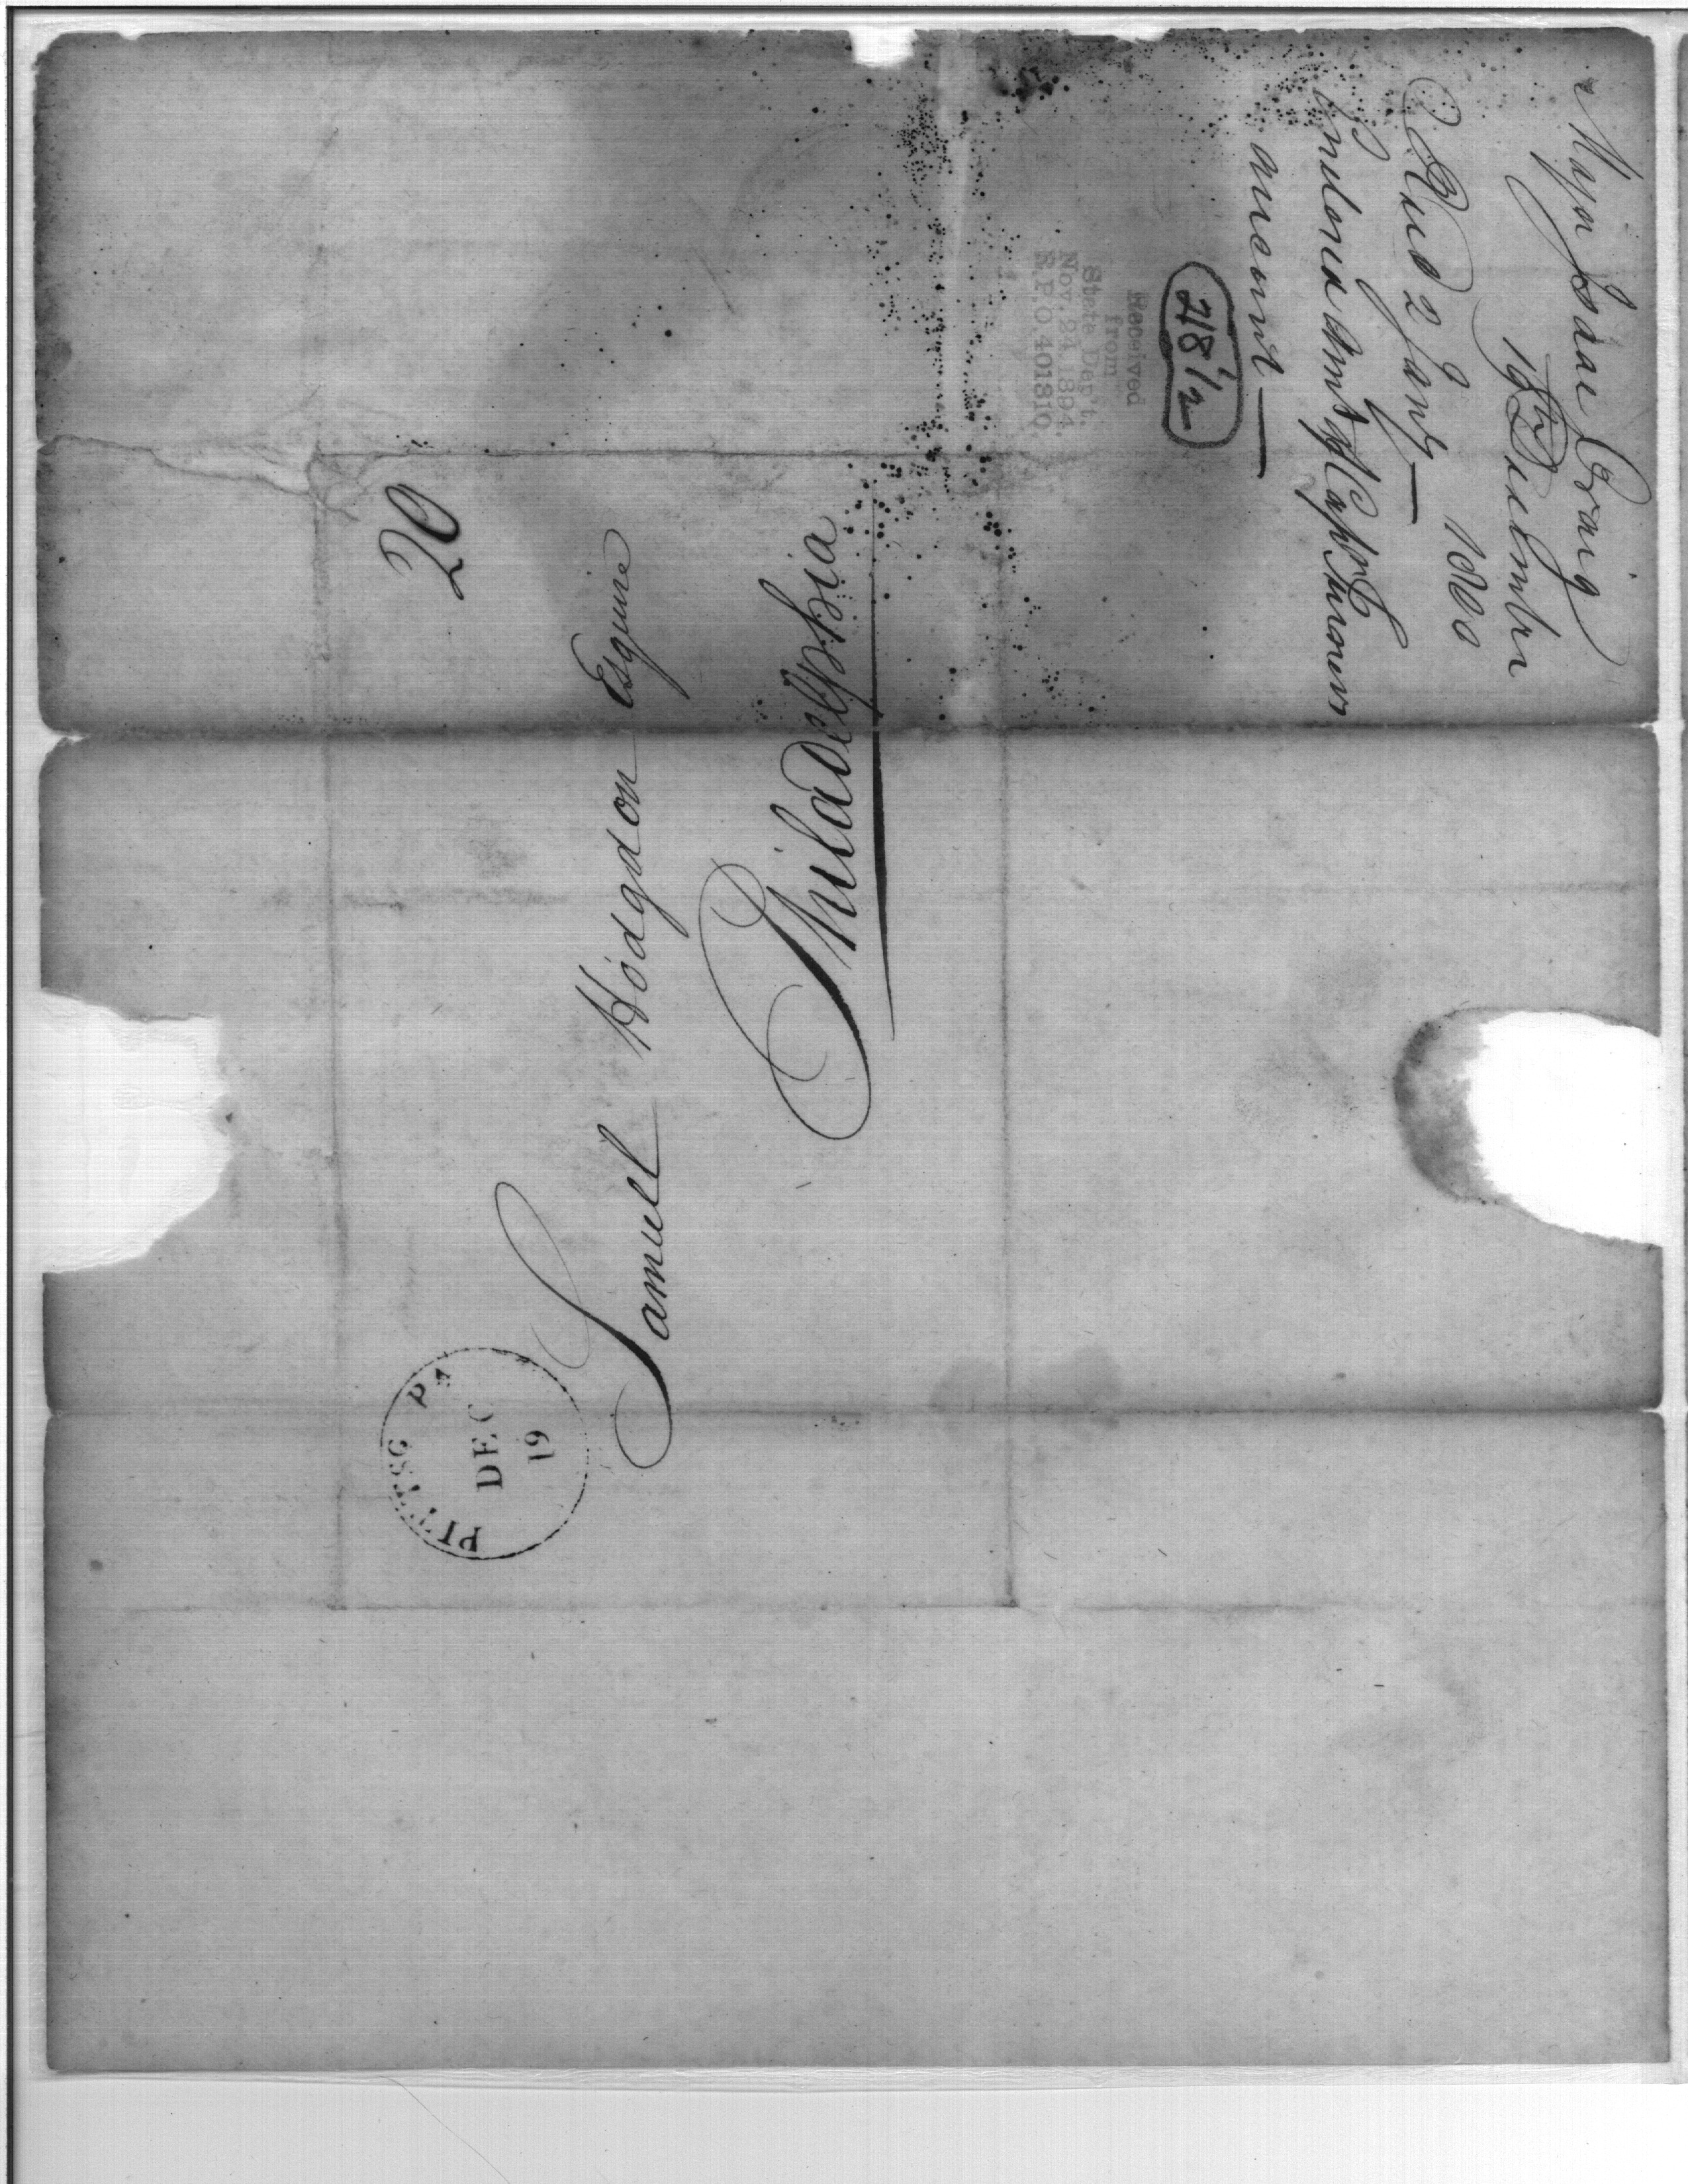 Major Isaac Craig
18th December
1800
Recd 2 Jany—
Answered—
218 1/2
Received
from
State Dep't.
Nov. 24 1894
R.P.O. 401810
20
Samuel Hodgdon Esquire
Philadelphia
PITTSG PA
DEC
19